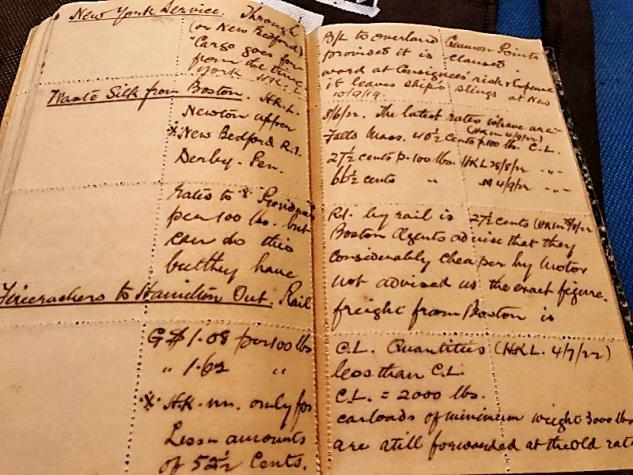 New York Service. Through
(or New Bedford)
Cargo goes for
from the time
York
Waste Silk from Boston. H.K.L.
Newton upper
* New Bedford R.I.
Derby. Pen.
Rates to * Providence
per 100 lbs. but
can do this
but they have
Firecrackers to Hamilton Ont. Rail
G$ 1.08 per 100 lbs
" 1.62 "
* H.K. only for
Less amounts
of 52½ Cents.
B/L to overland Common Points
provided it is claused
ward at Consignees' risk & expense
it leaves ship's slings at New
10/9/19.
8/6/22. The latest rates are
Falls Mass. 40½ Cents p. 100 lb. C.L.
27½ cents p. 100 lbs. HKL 28/8/22 -..-
66½ cents " 4/9/22 -..-
R.I. by rail is 27½ cents
Boston Agents advise that they
considerably cheaper by Motor
not advised us the exact figure.
freight from Boston is
C.L. Quantities (H.K.L. 4/7/22)
less than C.L.
C.L. = 2000 lbs.
carloads of minimum weight 3000 lbs
are still forwarded at the old rate